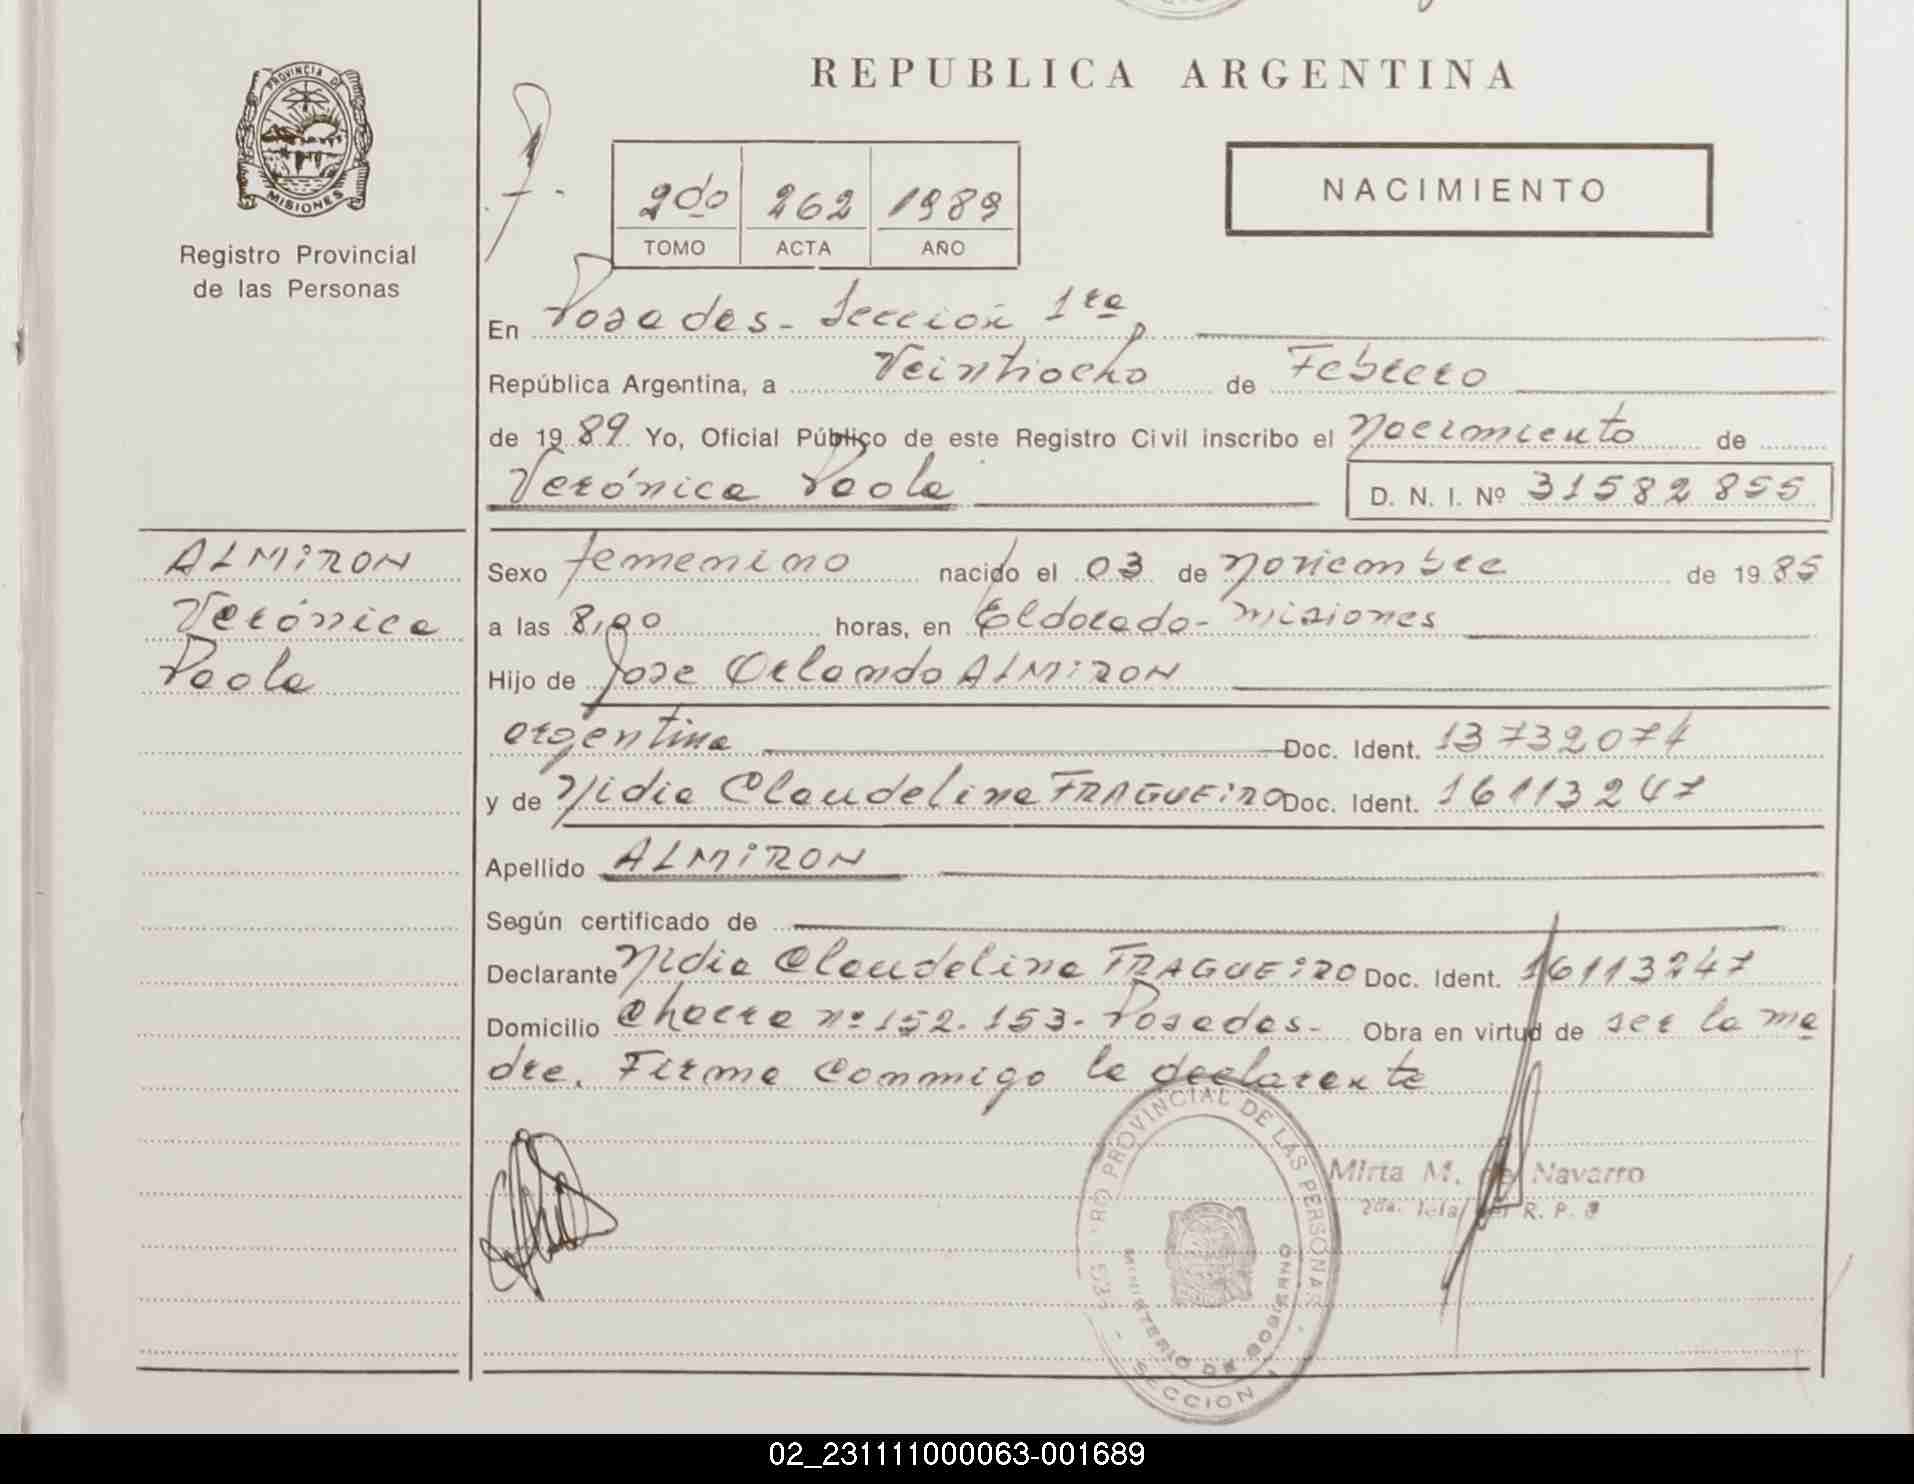 REPUBLICA ARGENTINA
PROVINCIA DE
MISIONES
Registro Provincial
de las Personas
2do 262 1989
TOMO ACTA AÑO
NACIMIENTO
En Posadas - Sección 1ra
República Argentina, a Veintiocho de Febrero
de 1989 Yo, Oficial Público de este Registro Civil inscribo el Nacimiento de
Verónica Paola D. N. I. Nº 31582855
ALMIRON
Verónica
Paola
Sexo femenino nacido el 03 de Noviembre de 1985
a las 8,00 horas, en Eldorado - Misiones
Hijo de Jose Orlando ALMIRON
argentina Doc. Ident. 13732074
y de Nidia Claudelina FRAGUEIRO Doc. Ident. 16113247
Apellido ALMIRON
Según certificado de
Declarante Nidia Claudelina FRAGUEIRO Doc. Ident. 16113247
Domicilio Chacra nº 152-153- Posadas- Obra en virtud de ser la ma
dre. Firma Conmigo la declarante
PROVINCIAL DE LAS PERSONAS
MINISTERIO DE GOBIERNO
SECCION 1
Mirta M. de Navarro
2da. R. P.
02_231111000063-001689